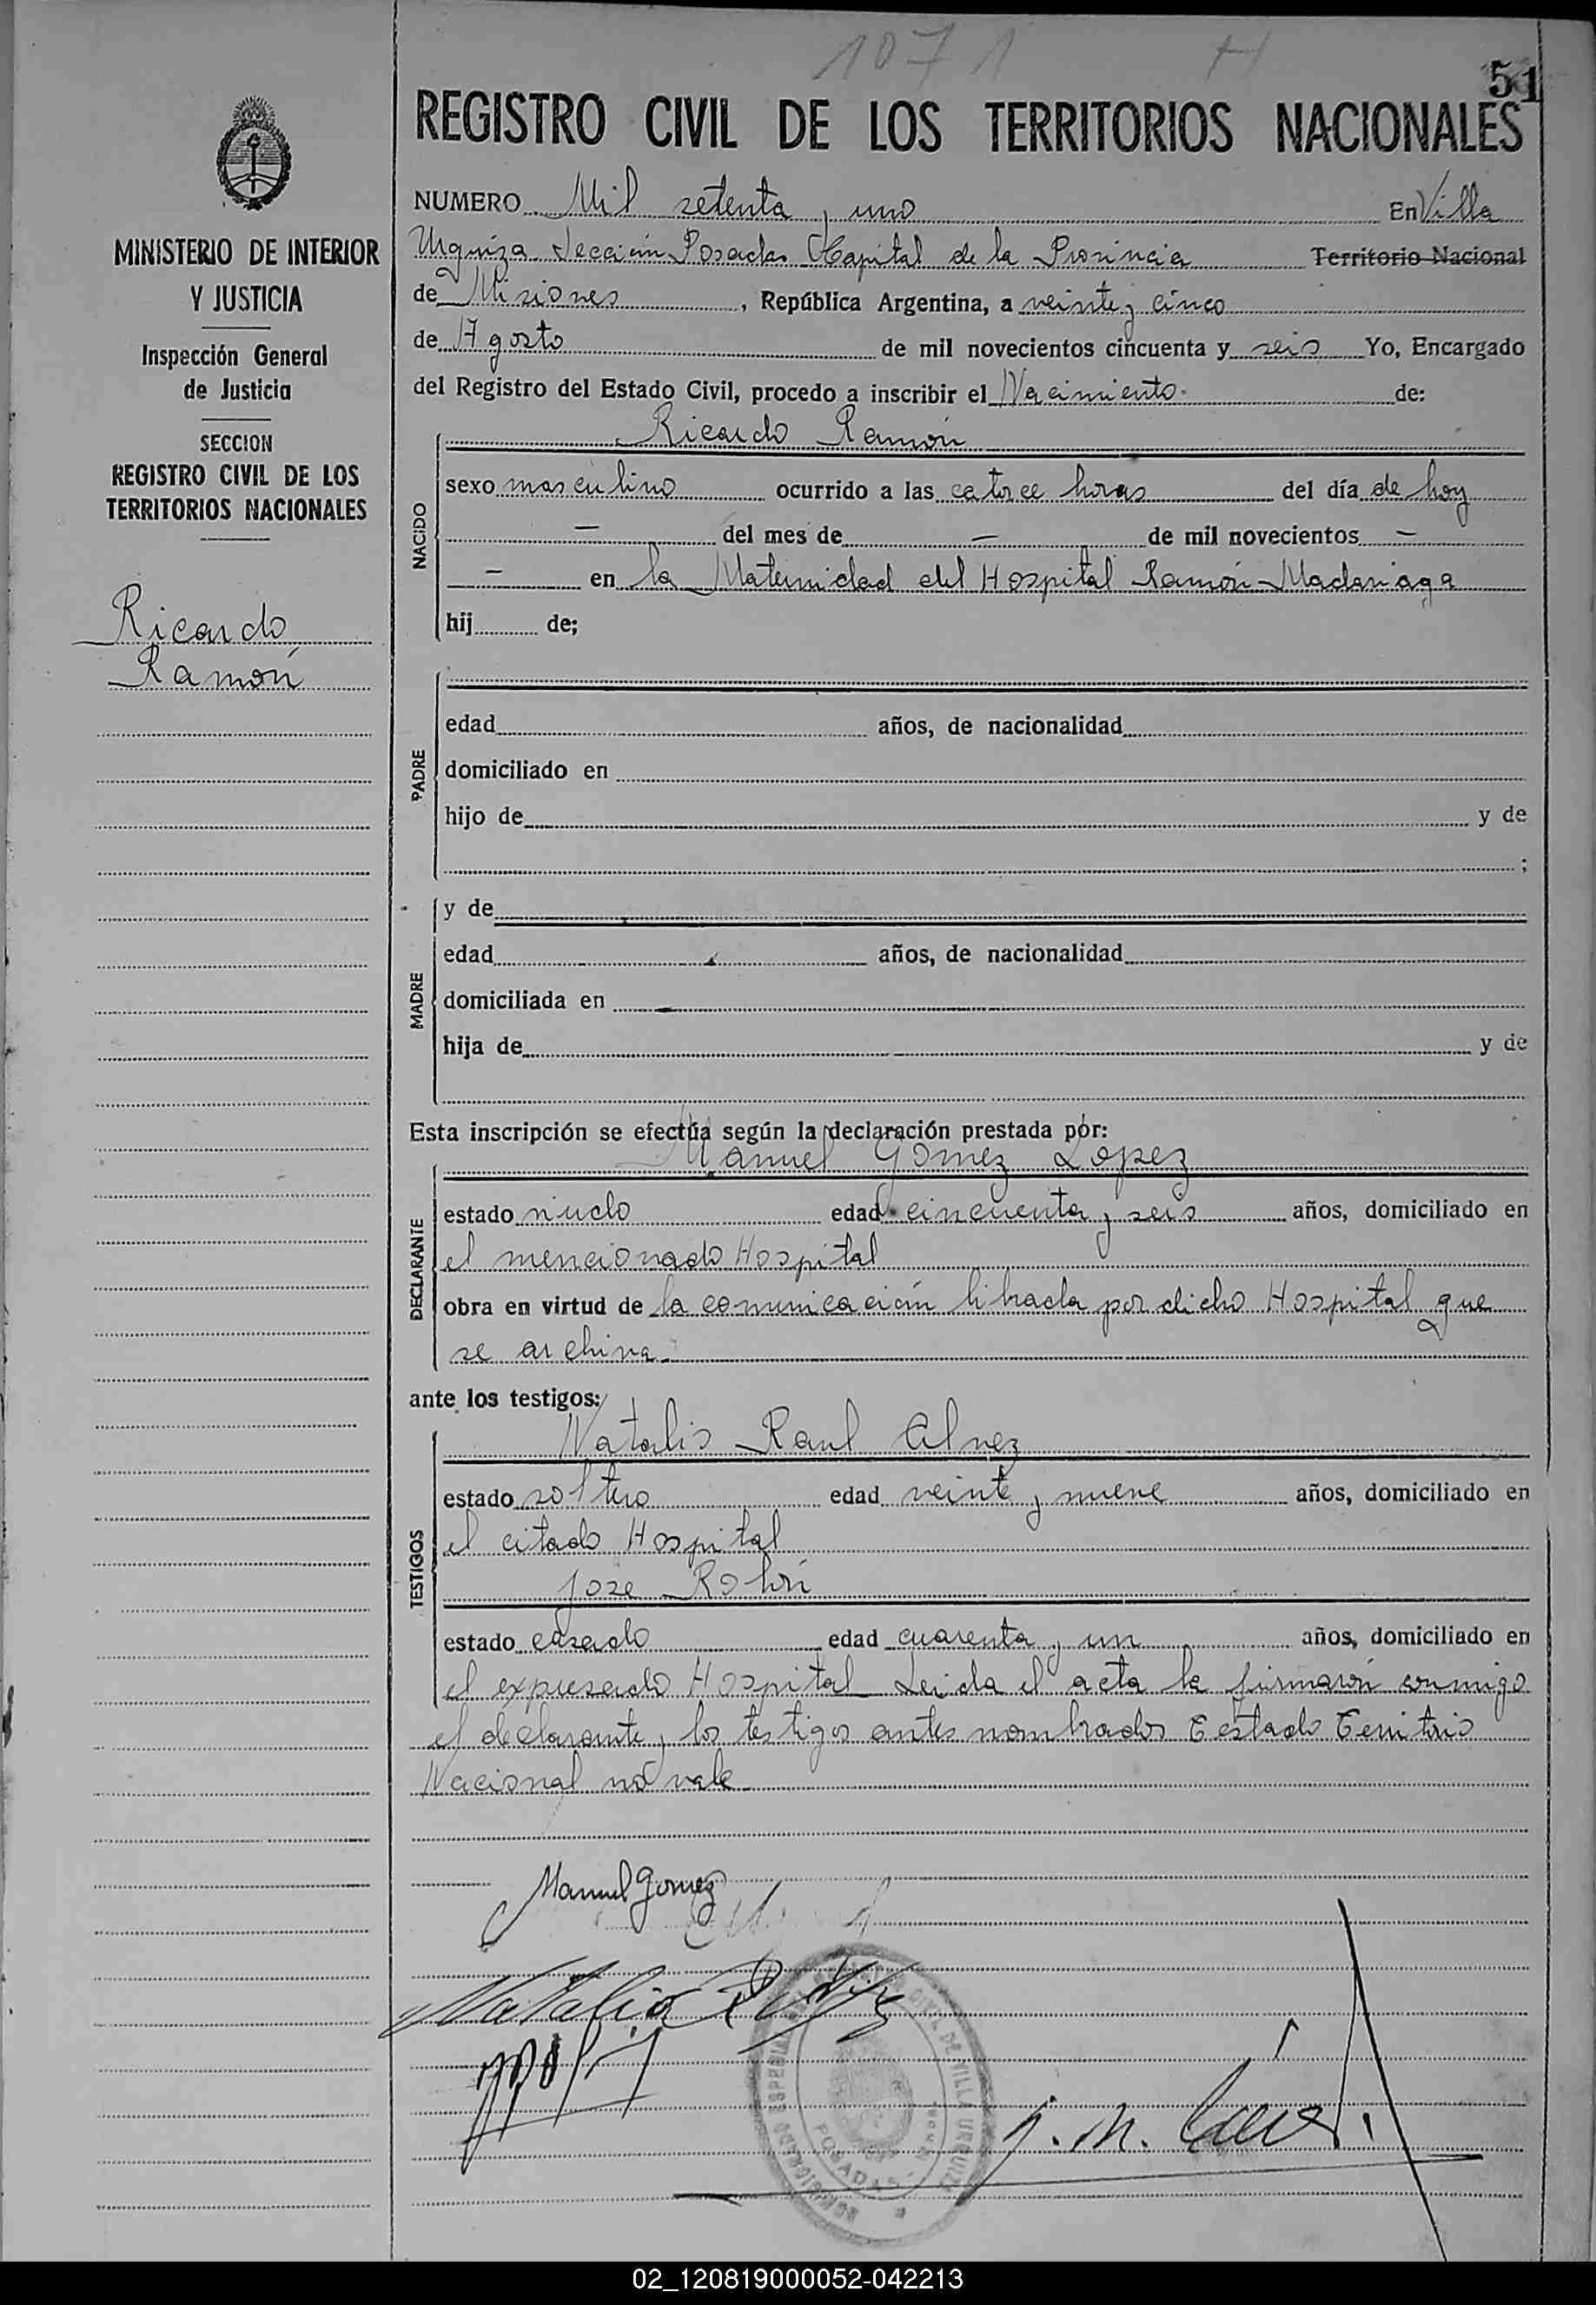 1071 H
51
REGISTRO CIVIL DE LOS TERRITORIOS NACIONALES
MINISTERIO DE INTERIOR
Y JUSTICIA
Inspección General
de Justicia
SECCION
REGISTRO CIVIL DE LOS
TERRITORIOS NACIONALES
Ricardo
Ramón
NUMERO Mil setenta y uno En Villa
Urquiza Sección Posadas Capital de la Provincia Territorio Nacional
de Misiones, República Argentina, a veinte y cinco
de Agosto de mil novecientos cincuenta y seis Yo, Encargado
del Registro del Estado Civil, procedo a inscribir el Nacimiento de:
NACIDO
Ricardo Ramón
sexo masculino ocurrido a las catorce horas del día de hoy
— del mes de — de mil novecientos —
— en la Maternidad del Hospital Ramón Madariaga
hij de;
PADRE
edad años, de nacionalidad
domiciliado en
hijo de y de
;
MADRE
y de
edad años, de nacionalidad
domiciliada en
hija de y de
Esta inscripción se efectúa según la declaración prestada por:
DECLARANTE
Manuel Gomez Lopez
estado viudo edad cincuenta y seis años, domiciliado en
el mencionado Hospital
obra en virtud de la comunicación librada por dicho Hospital que
se archiva.
ante los testigos:
TESTIGOS
Natalio Raul Alvez
estado soltero edad veinte y nueve años, domiciliado en
el citado Hospital
Jose
estado casado edad cuarenta y un años, domiciliado en
el expresado Hospital Leida el acta la firmaron conmigo
el declarante y los testigos antes nombrados Testado Territorio
Nacional no vale
Manuel Gomez
Natalio R
CIVIL DE VILLA URQUIZA
POSADAS
J. M.
02_120819000052-042213